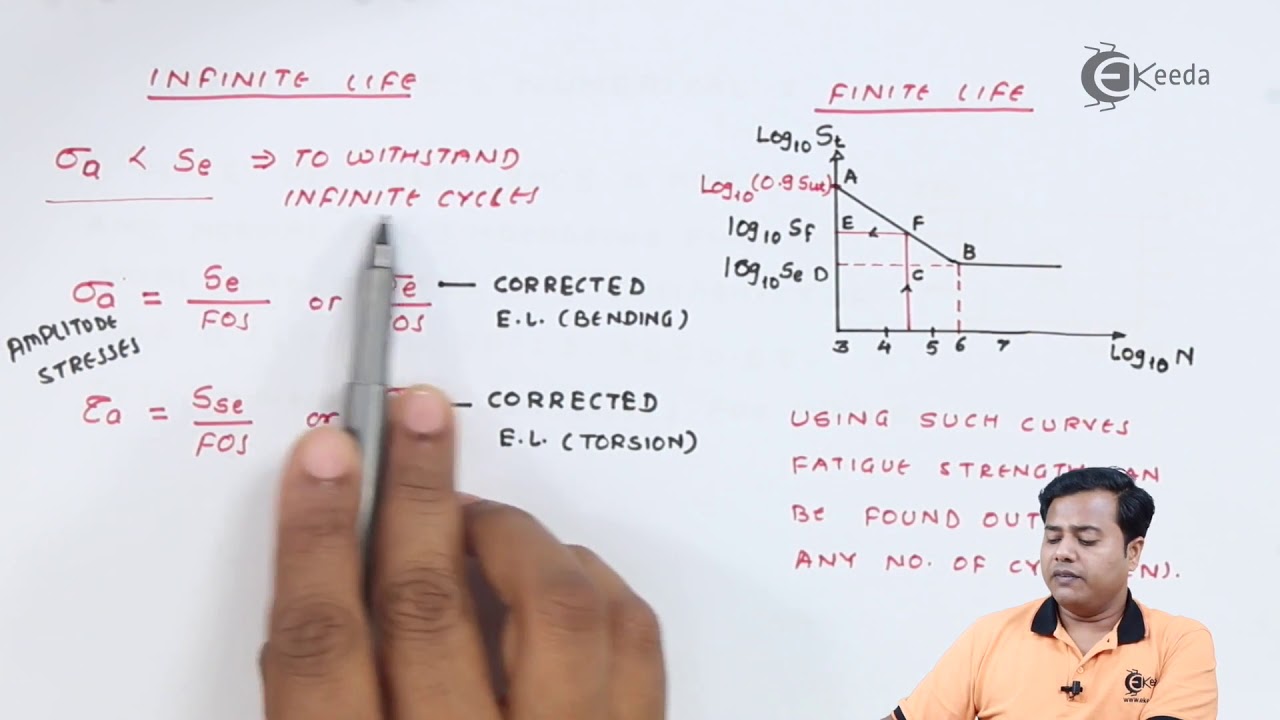 INFINITE LIFE
σa < Se ⇒ TO WITHSTAND
INFINITE CYCLES
σa = Se/FOS or σe/FOS — CORRECTED
E.L. (BENDING)
AMPLITUDE
STRESSES
τa = Sse/FOS or — CORRECTED
E.L. (TORSION)
eKeeda
FINITE LIFE
Log10 St
Log10 (0.9 Sut) A
log10 Sf E F
log10 Se D C B
3 4 5 6 7
Log10 N
USING SUCH CURVES
FATIGUE STRENGTH
BE FOUND OUT
ANY NO. OF N).
eKeeda